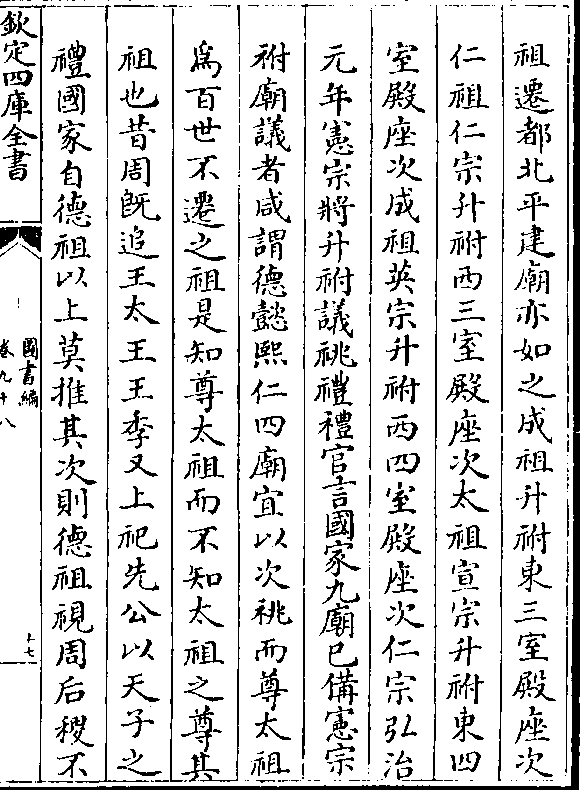 祖遷都北平建廟亦如之成祖升祔東三室殿座次
仁祖仁宗升祔西三室殿座次太祖宣宗升祔東四
室殿座次成祖英宗升祔西四室殿座次仁宗弘治
元年憲宗將升祔議祧禮禮官言國家九廟已備憲宗
祔廟議者咸謂德懿熙仁四廟宜以次祧而尊太祖
為百世不遷之祖是知尊太祖而不知太祖之尊其
祖也昔周旣追王太王王季又上祀先公以天子之
禮國家自德祖以上莫推其次則德祖視周后稷不
欽定四庫全書
圖書編
卷九十八
十七